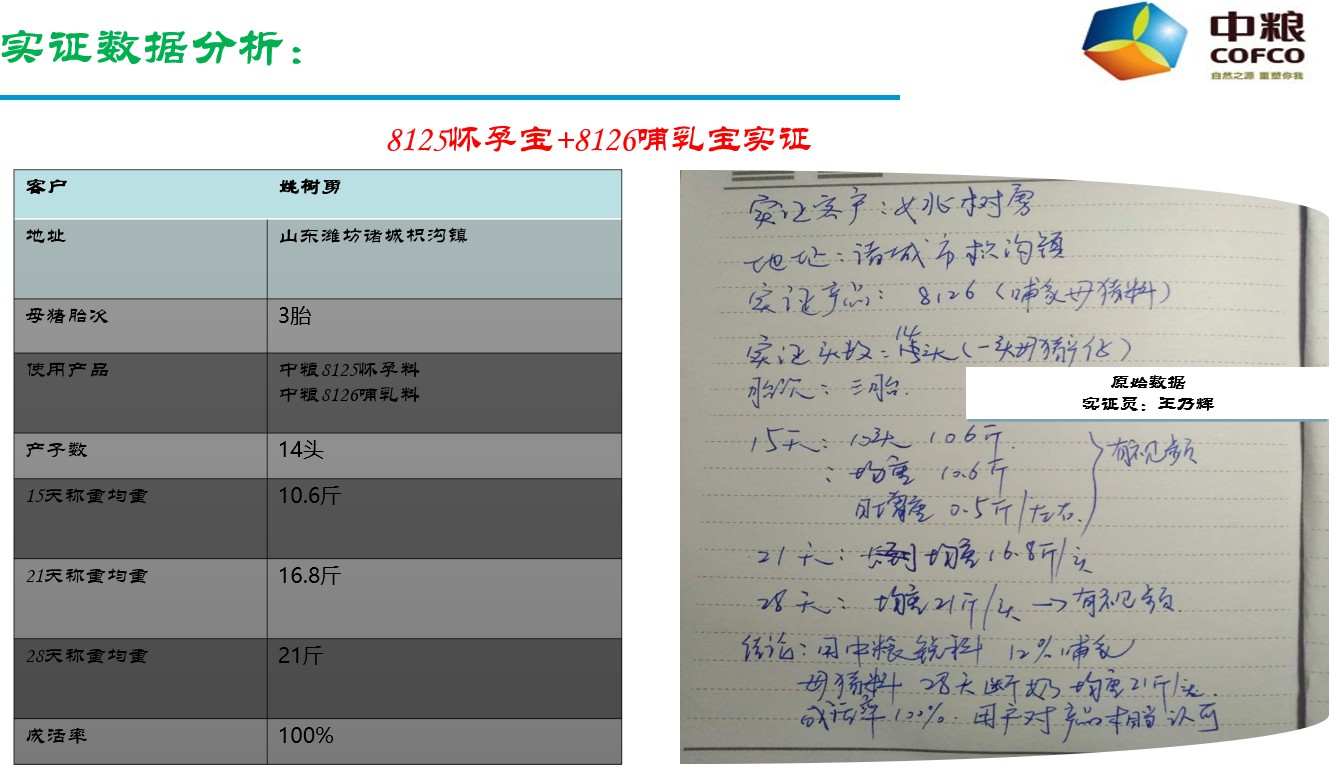 实证数据分析：
中粮
COFCO
自然之源 重塑你我
8125怀孕宝+8126哺乳宝实证
客户 姚树勇
地址 山东潍坊诸城枳沟镇
母猪胎次 3胎
使用产品 中粮8125怀孕料
中粮8126哺乳料
产子数 14头
15天称重均重 10.6斤
21天称重均重 16.8斤
28天称重均重 21斤
成活率 100%
实证客户：姚树勇
地址：诸城市枳沟镇
实证产品：8126（哺乳母猪料）
实证头数：14头（一头母猪产仔）
胎次：三胎.
原始数据
实证员：王乃辉
15天：10头 106斤.
：均重 10.6斤
日增重 0.5斤/左右.
有视频
21天： 均重16.8斤/头
28天： 均重21斤/头→有视频.
结论：用中粮 料 12%哺乳
母猪料 28天断奶均重21斤/头.
成活率100%. 用户对产品相当认可